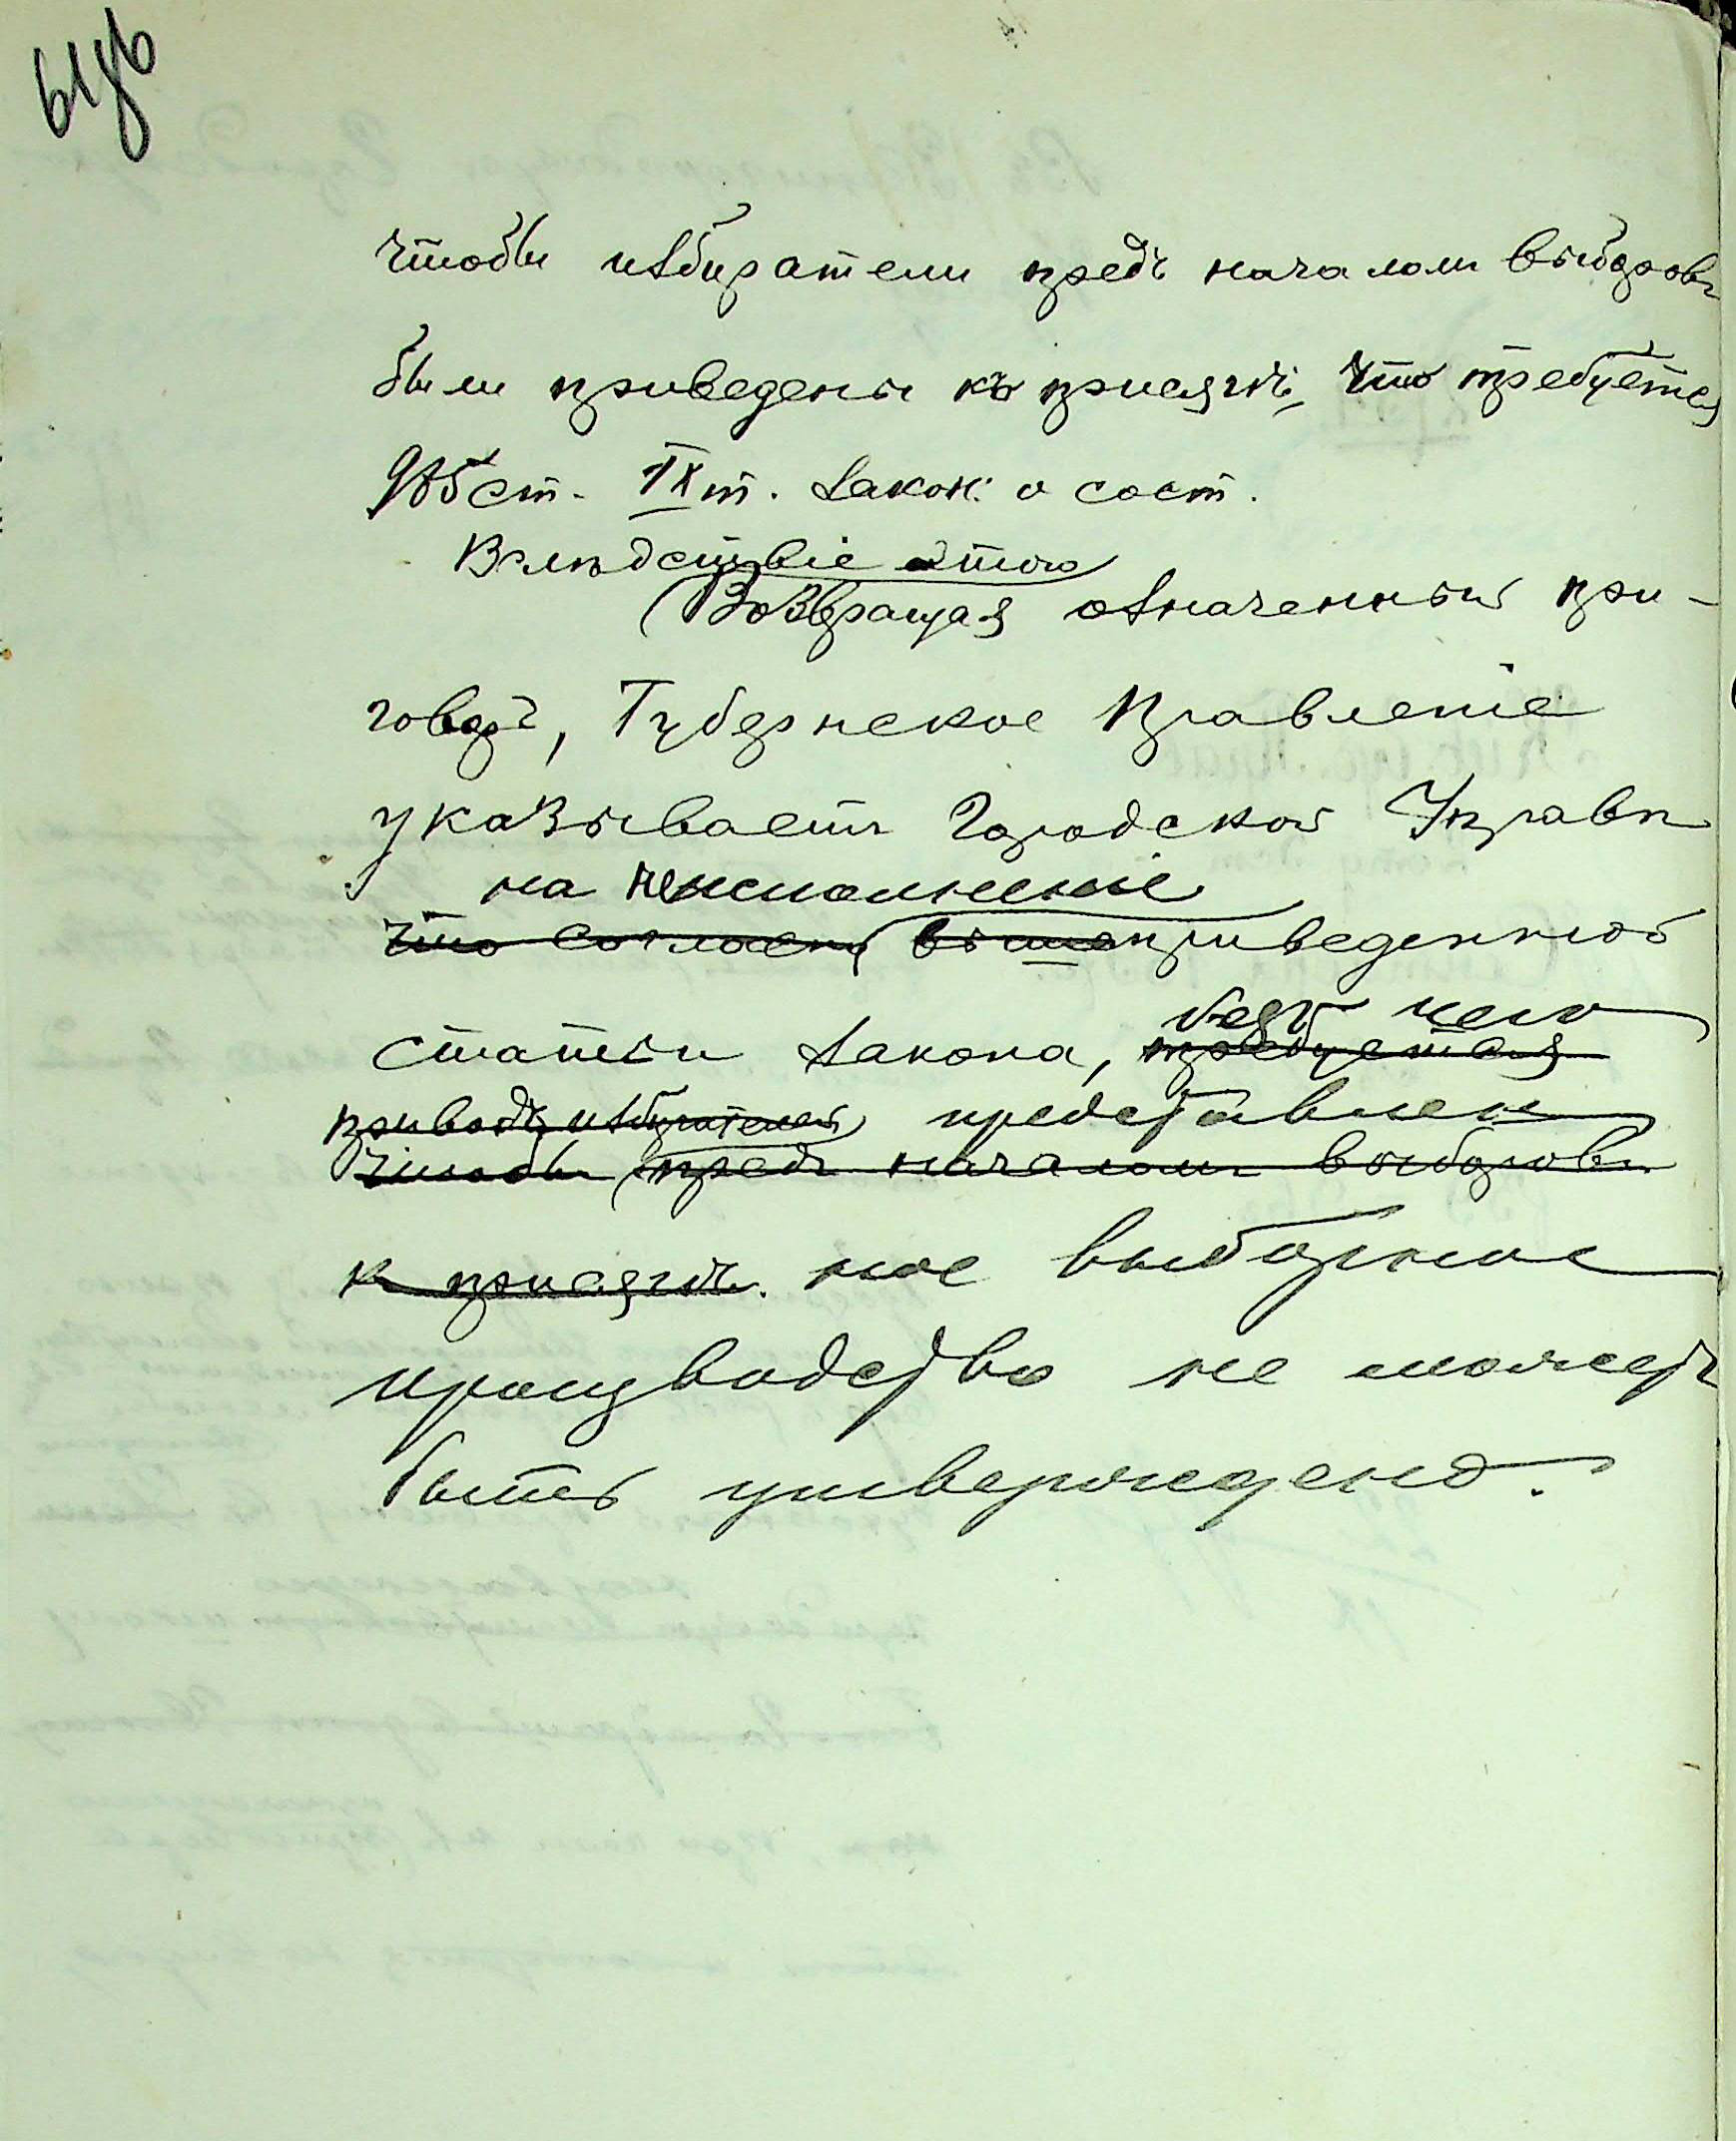 чтобы избиратели предъ началомъ выборовъ
были приведены къ присягѣ, что требуется
ст. IX т. Закон. о сост.
Вслѣдствіе этого
Возвращая означенный при-
говоръ, Губернское Правленіе
указываетъ Городской Управѣ
на неисполненіе
что согласно вышеприведенной
статьи Закона, требуется
безъ чего
приводъ избирателей представлен
чтобы предъ началомъ выборовъ
к присягѣ. ное выборное
производство не можетъ
быть утверждено.